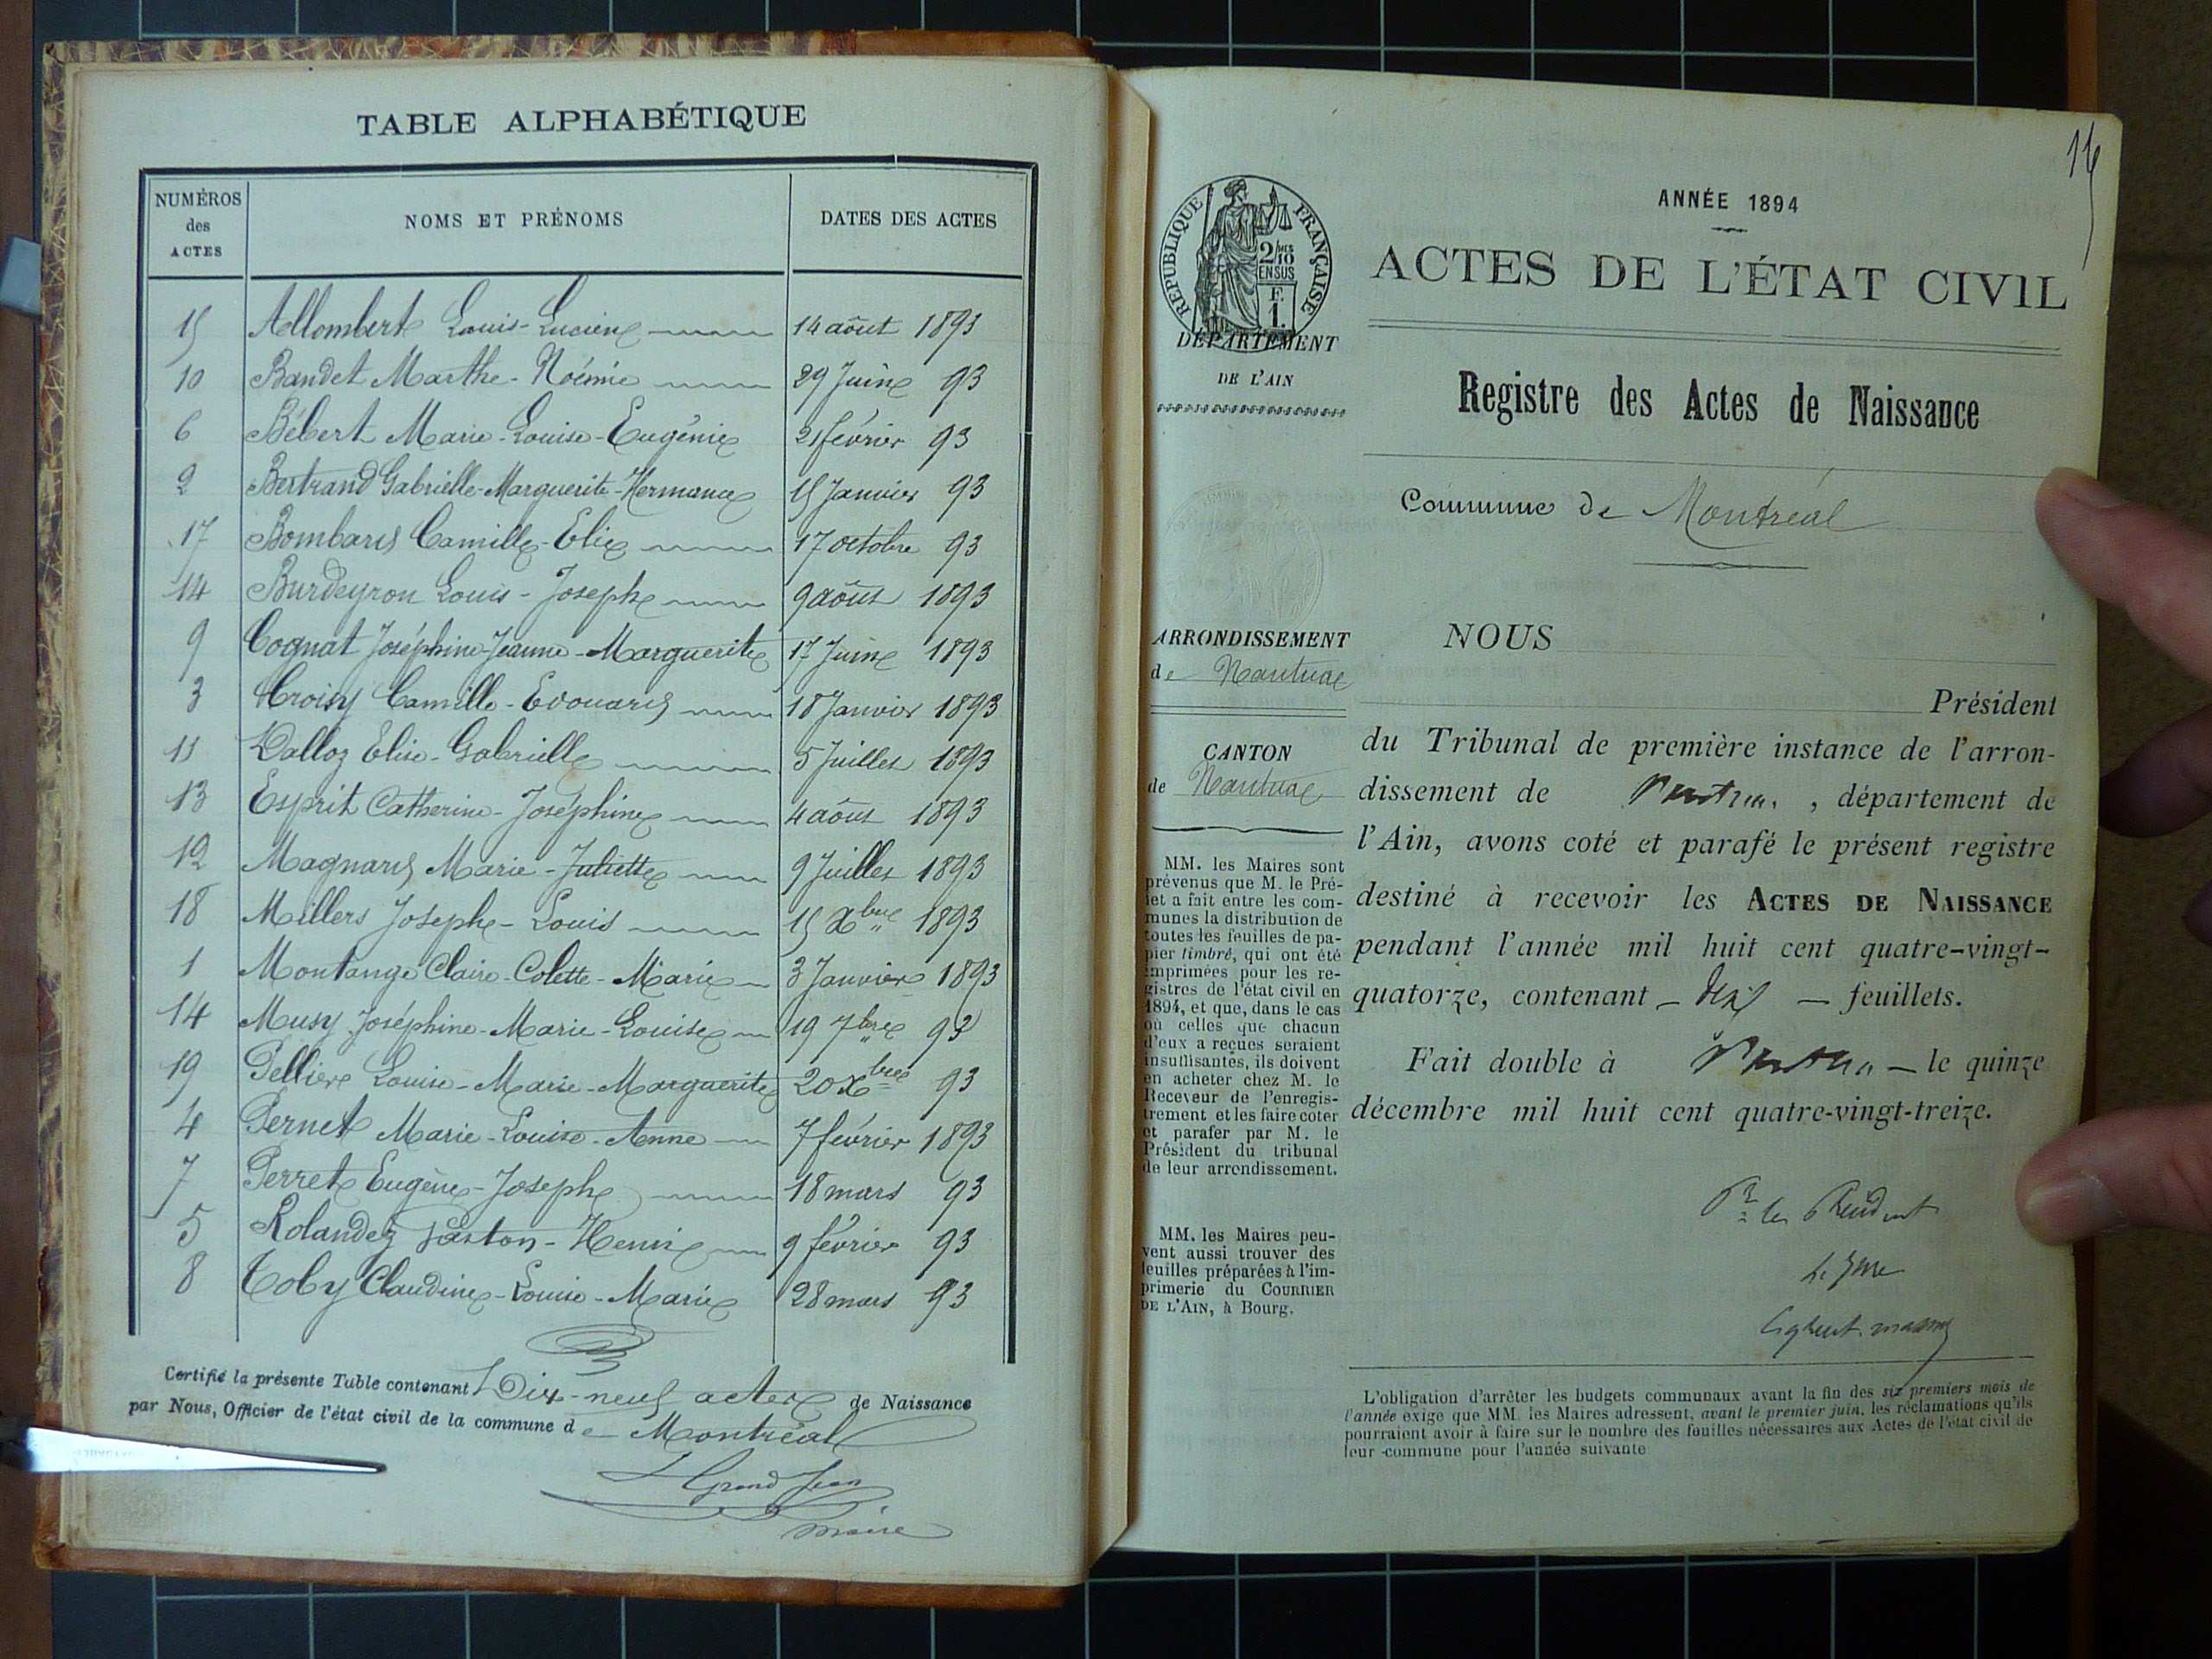 TABLE ALPHABÉTIQUE
NUMÉROS des ACTES
NOMS ET PRÉNOMS
DATES DES ACTES
15 Allombert Louis-Lucien 14 août 1893
10 Bandet Marthe-Noémie 29 Juin 93
6 Bébert Marie-Louise-Eugénie 21 février 93
2 Bertrand Gabrielle-Marguerite-Hermance 15 Janvier 93
17 Bombard Camille-Elie 17 octobre 93
14 Burdeyron Louis-Joseph 9 août 1893
9 Cognat Joséphine-Jeanne-Marguerite 17 Juin 1893
3 Croisy Camille-Edouard 18 Janvier 1893
11 Dalloz Elise-Gabrielle 5 Juillet 1893
13 Esprit Catherine-Joséphine 4 août 1893
12 Magnard Marie-Juliette 9 Juillet 1893
18 Millers Joseph-Louis 15 Xbre 1893
1 Montange Claire-Colette-Marie 3 Janvier 1893
14 Musy Joséphine-Marie-Louise 19 7bre 93
19 Pellier Louise-Marie-Marguerite 20 Xbre 93
4 Pernet Marie-Louise-Anne 7 février 1893
7 Perret Eugène-Joseph 18 mars 93
5 Rolandez Gaston-Henri 9 février 93
8 Toby Claudine-Louise-Marie 28 mars 93
Certifié la présente Table contenant Dix-neuf actes de Naissance
par Nous, Officier de l'état civil de la commune de Montréal
Grand Jean
maire
16
RÉPUBLIQUE FRANÇAISE
2/10 MES
EN SUS
F.
1.
DÉPARTEMENT
DE L'AIN
ANNÉE 1894
ACTES DE L'ÉTAT CIVIL
Registre des Actes de Naissance
Commune de Montréal
ARRONDISSEMENT
de Nantua
CANTON
de Nantua
MM. les Maires sont
prévenus que M. le Pré-
fet a fait entre les com-
munes la distribution de
toutes les feuilles de pa-
pier timbré, qui ont été
imprimées pour les re-
gistres de l'état civil en
1894, et que, dans le cas
où celles que chacun
d'eux a reçues seraient
insuffisantes, ils doivent
en acheter chez M. le
Receveur de l'enregis-
trement et les faire coter
et parafer par M. le
Président du tribunal
de leur arrondissement.
MM. les Maires peu-
vent aussi trouver des
feuilles préparées à l'im-
primerie du COURRIER
DE L'AIN, à Bourg.
NOUS
Président
du Tribunal de première instance de l'arron-
dissement de Nantua, département de
l'Ain, avons coté et parafé le présent registre
destiné à recevoir les ACTES DE NAISSANCE
pendant l'année mil huit cent quatre-vingt-
quatorze, contenant — dix — feuillets.
Fait double à Nantua — le quinze
décembre mil huit cent quatre-vingt-treize.
Pr le Président
Le Juge
L'obligation d'arrêter les budgets communaux avant la fin des six premiers mois de
l'année exige que MM. les Maires adressent, avant le premier juin, les réclamations qu'ils
pourraient avoir à faire sur le nombre des feuilles nécessaires aux Actes de l'état civil de
leur commune pour l'année suivante